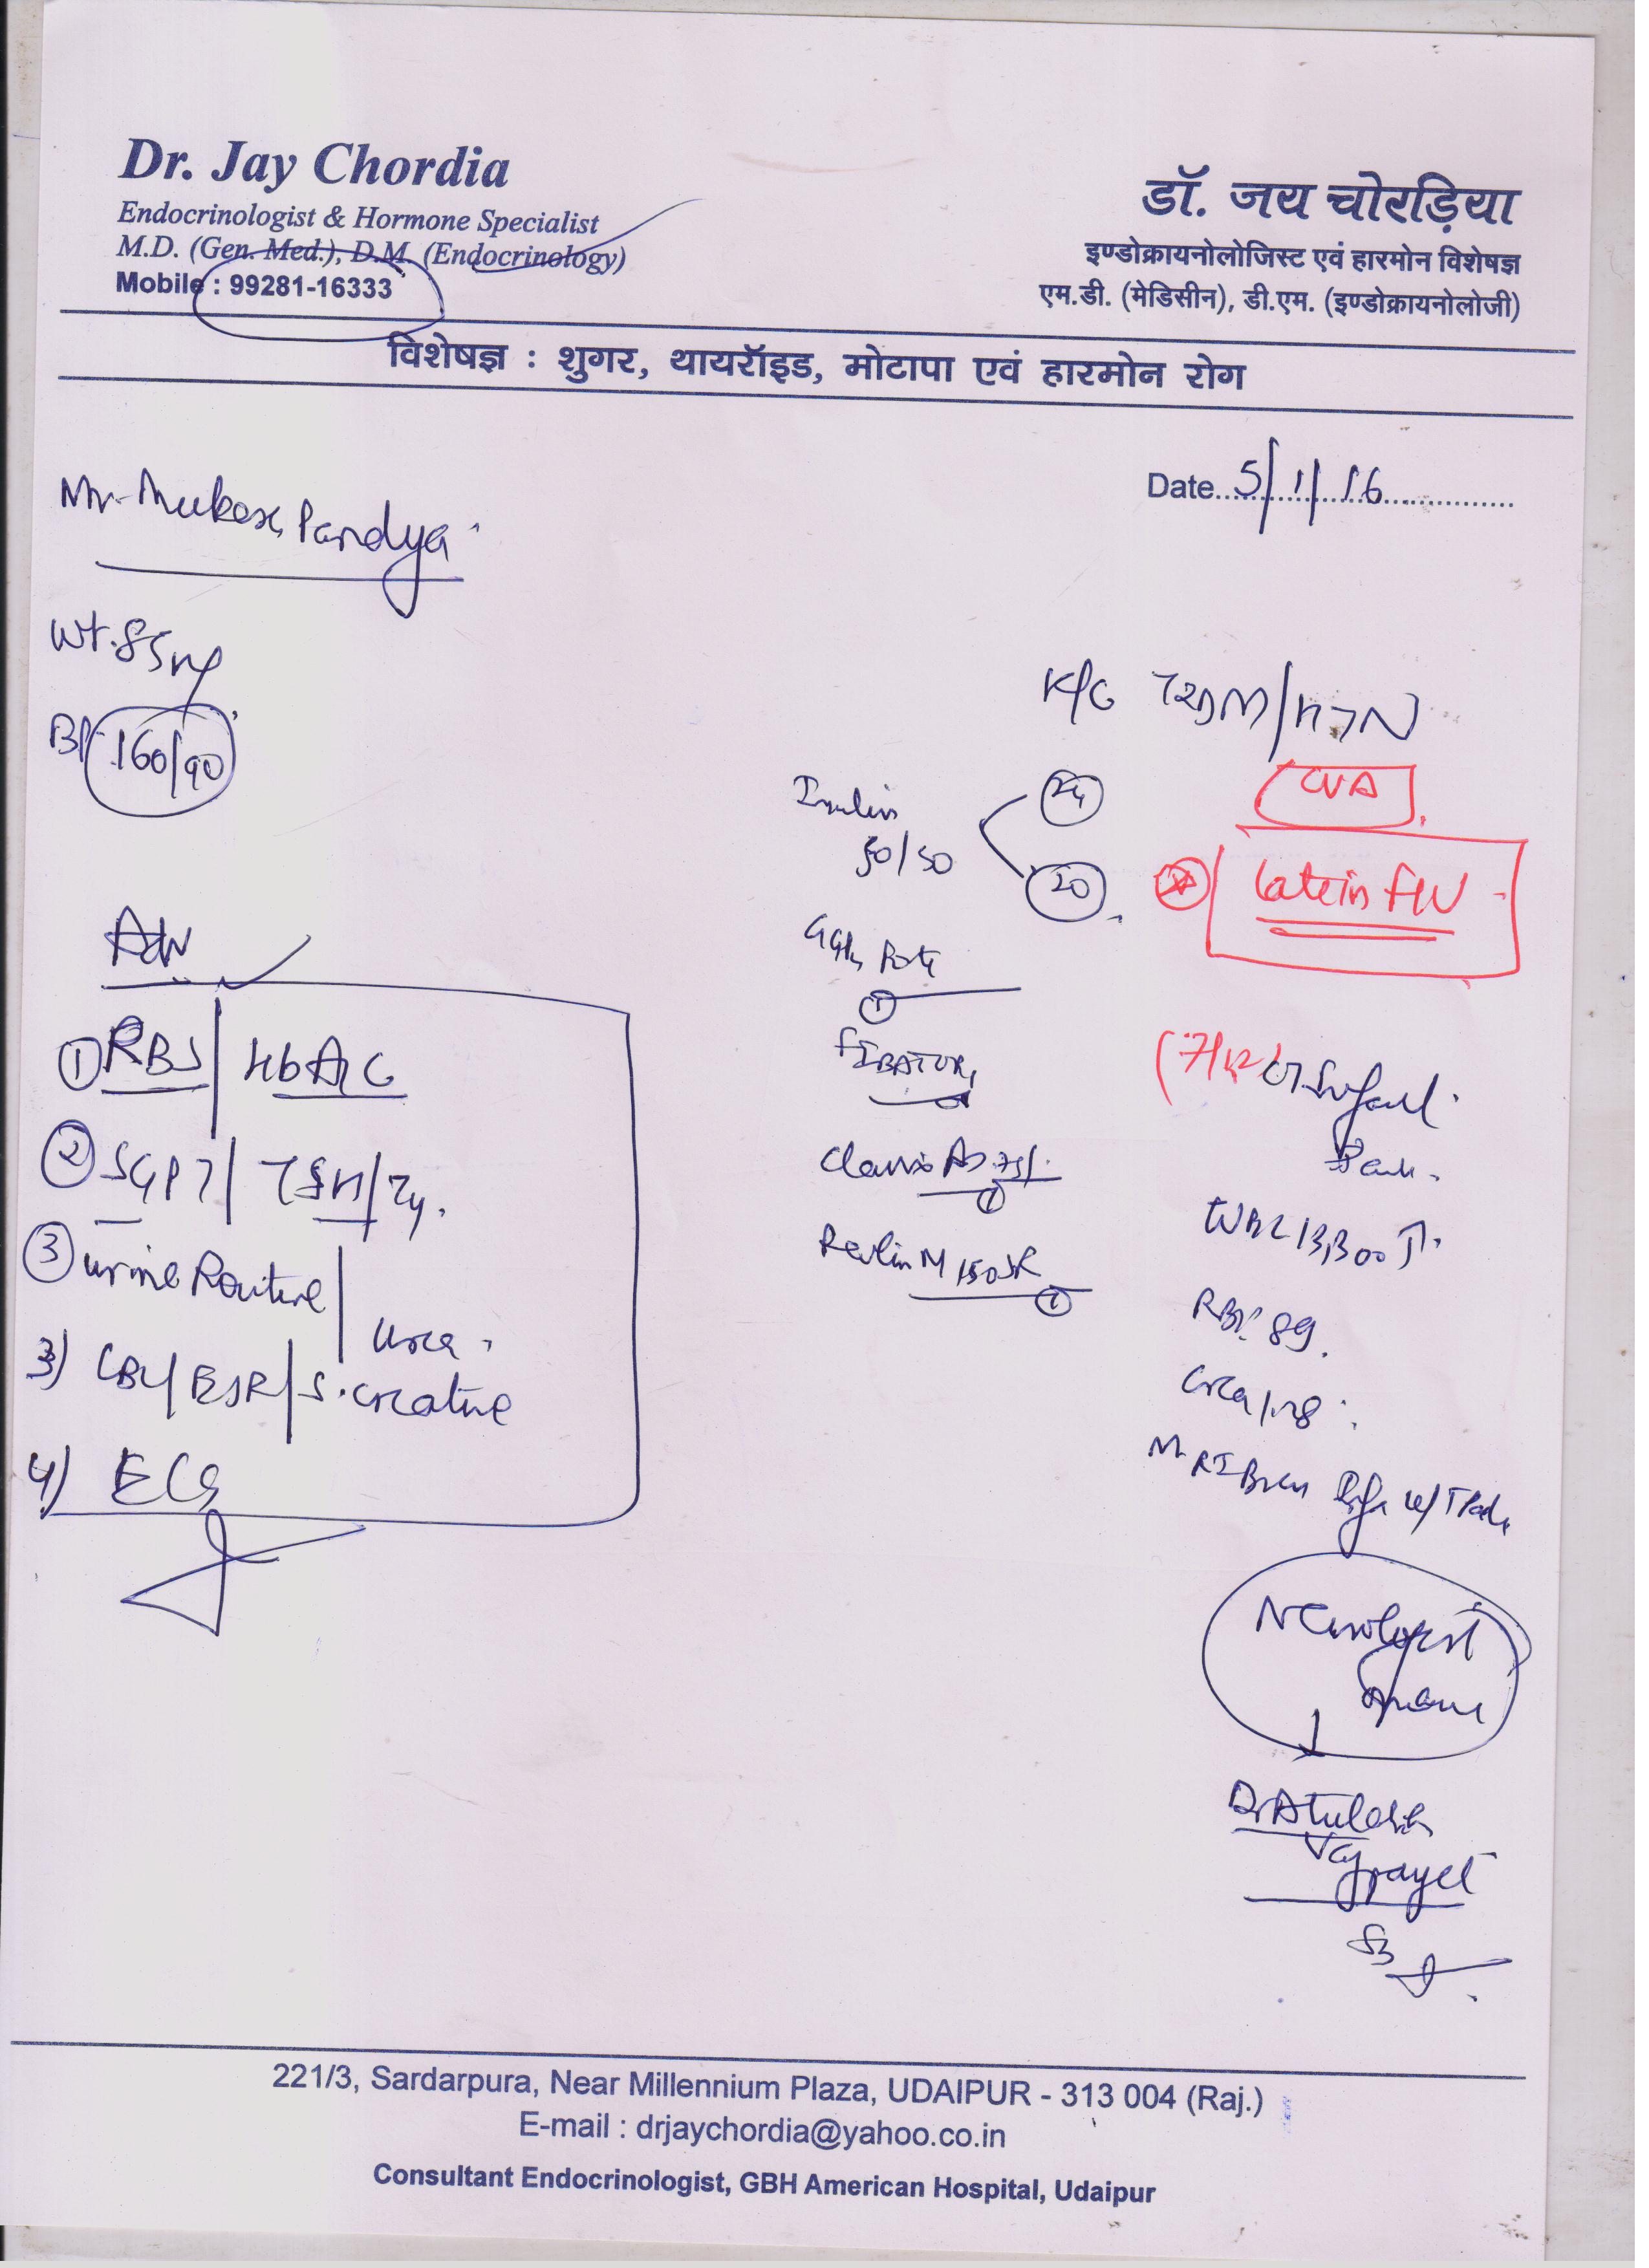 Dr. Jay Chordia
Endocrinologist & Hormone Specialist
M.D. (Gen. Med.), D.M. (Endocrinology)
Mobile : 99281-16333
डॉ. जय चोरड़िया
इण्डोक्रायनोलोजिस्ट एवं हारमोन विशेषज्ञ
एम.डी. (मेडिसीन), डी.एम. (इण्डोक्रायनोलोजी)
विशेषज्ञ : शुगर, थायरॉइड, मोटापा एवं हारमोन रोग
Date 5/1/16
Mr. Mukesh Pandya
Wt. 85 kg
BP 160/90
Adv
① RBS / HbA1C
② SGPT / TSH / T4.
③ Urine Routine / Urea
3) CBC / ESR / S. Creatine
4) ECG
K/C T2DM / HTN
CVA
Late in F/U
Insulin
50/50
24
20
①
FIBATOR
①
M 150 SR
①
(7/12)
WBC 13,300
RBS 89.
MRI Brain
Neurologist
opinion
Vajpayee
221/3, Sardarpura, Near Millennium Plaza, UDAIPUR - 313 004 (Raj.)
E-mail : drjaychordia@yahoo.co.in
Consultant Endocrinologist, GBH American Hospital, Udaipur